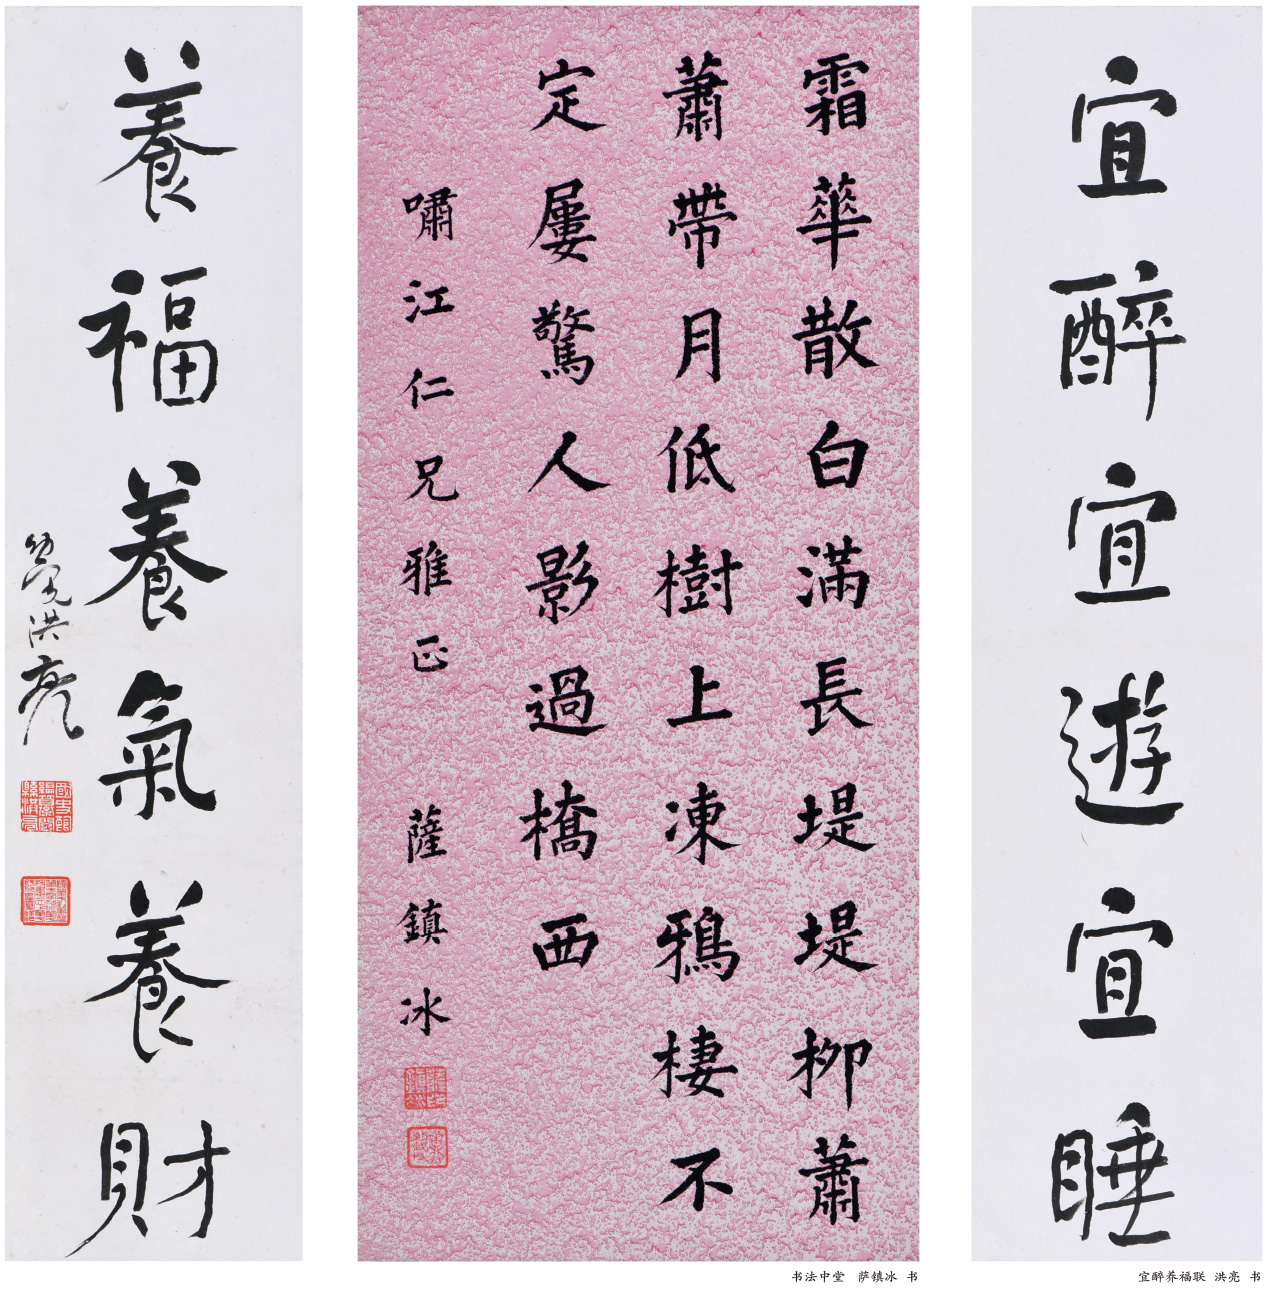 宜醉宜遊宜睡
霜華散白滿長堤堤柳蕭
蕭帶月低樹上凍鴉棲不
定屢驚人影過橋西
嘯江仁兄雅正 薩鎮冰
養福養氣養財
洪亮
书法中堂 萨镇冰 书
宜醉养福联 洪亮 书